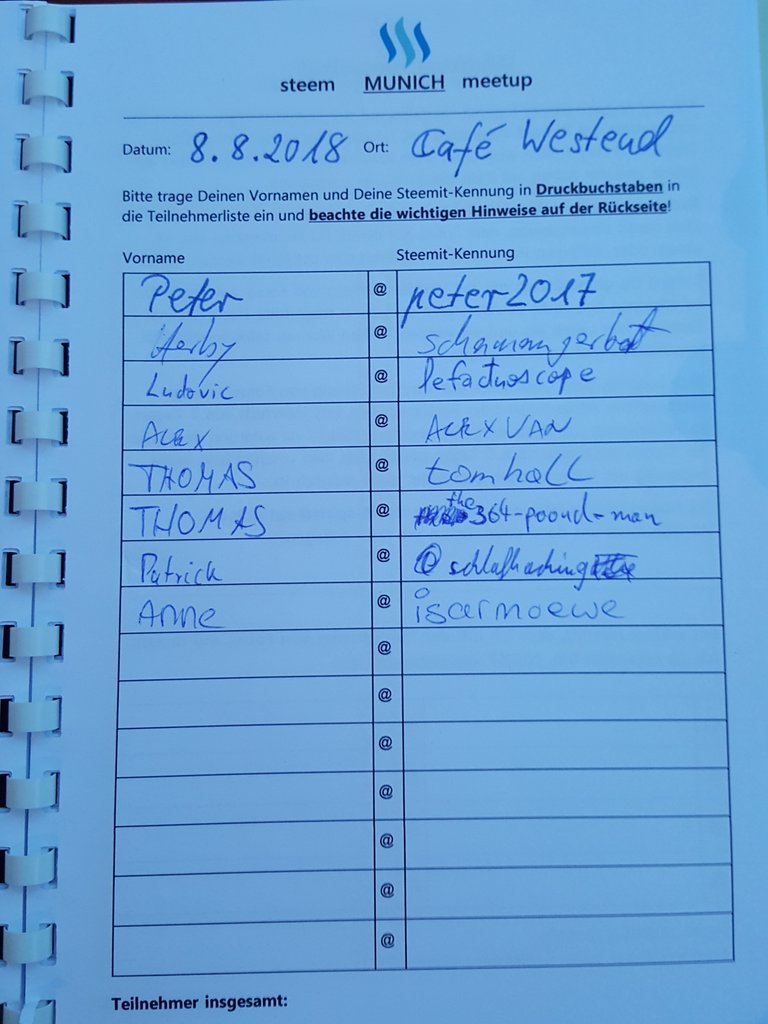 steem MUNICH meetup
Datum: 8.8.2018 Ort: Café Westend
Bitte trage Deinen Vornamen und Deine Steemit-Kennung in Druckbuchstaben in
die Teilnehmerliste ein und beachte die wichtigen Hinweise auf der Rückseite!
Vorname Steemit-Kennung
Peter @ peter2017
Herby @
Ludovic @ lefactuoscope
ALEX @ ALEXVAN
THOMAS @ tomhall
THOMAS @ the364-pound-man
Patrick @ @schlafhacking
ANNE @ isarmoewe
@
@
@
@
@
@
@
Teilnehmer insgesamt: